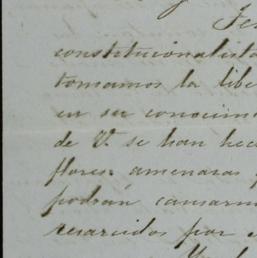 constitucionalista
tomamos la libe
en su conocim
de V. se han hec
flores amenazas
podrán causarn
resarcidos por